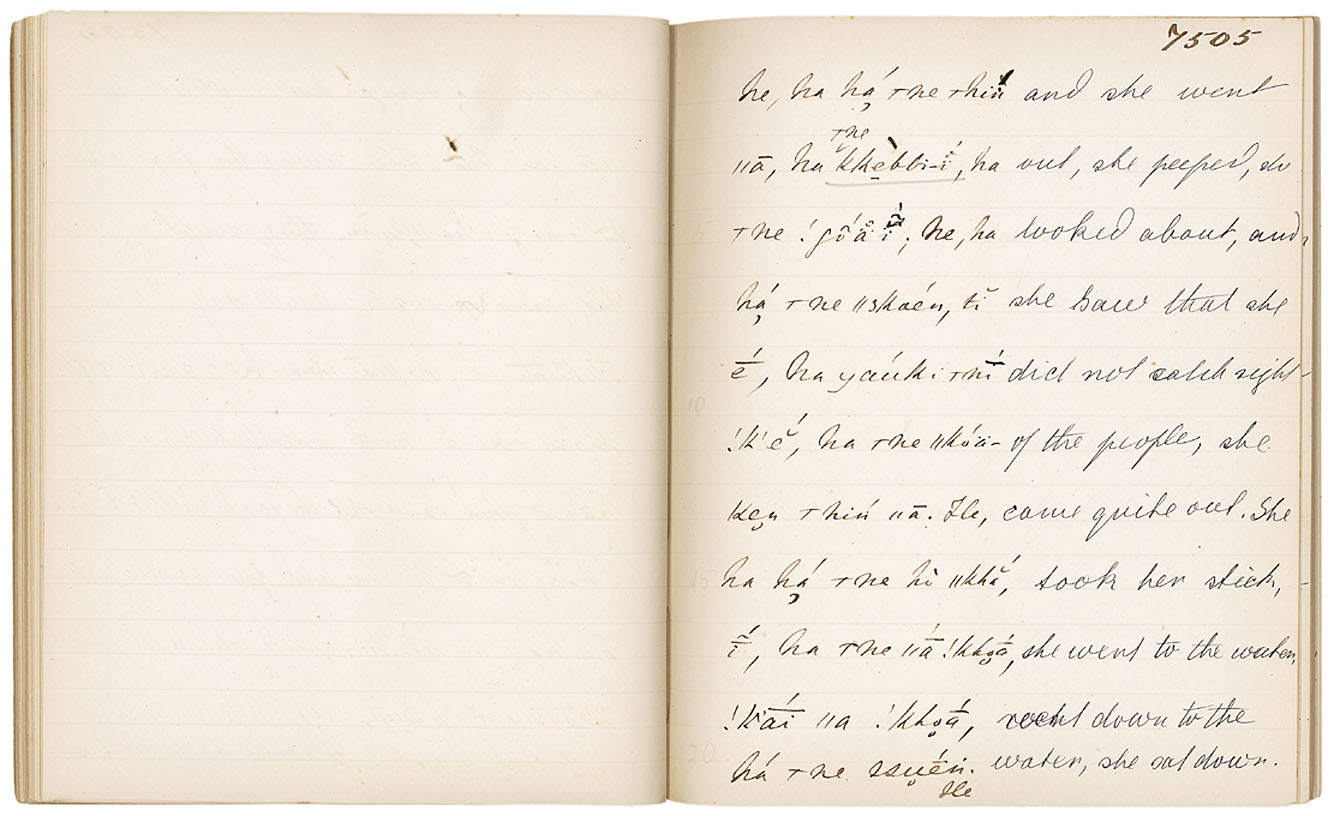 7505
he, ha há̦ ⊤ne ⊤hiń and she went
⊤ne
ǁā, ha kke̱bbi-ĭ́, ha out, she peeped, she
5
⊤ne ! he, ha looked about, and
há̦ ⊤ne ǁskoén, tĭ she saw that she
10
ḗ, ha yaúki ⊤nī́ did not catch sight
!k'ĕ́, ha ⊤ne ǁkóa- of the people, she
ken ⊤hiń ǁā. He, come quite out. She
15
ha há̦ ⊤ne hi ǁkhắ, took her stick,
ī́, ha ⊤ne ǁā́ !kho̤ā́, she went to the water,
!k'ā́i ǁa !kho̤ā́, went down to the
20
há ⊤ne ssṵḗn. water, she sat down.
He